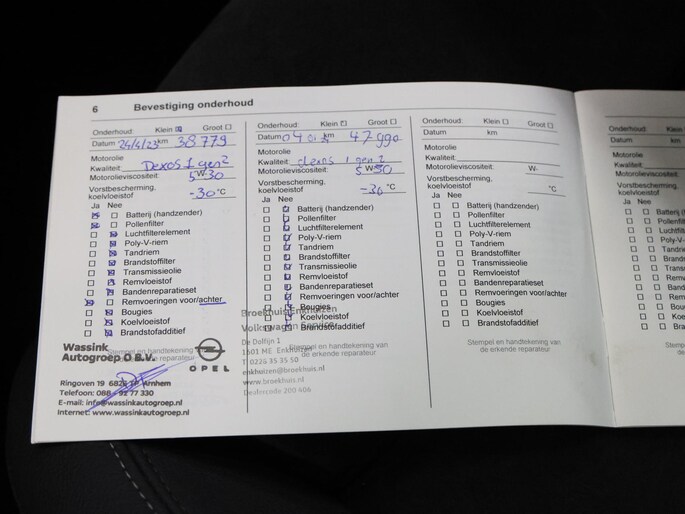 6 Bevestiging onderhoud
Onderhoud: Klein Groot
Datum 24/4/23 km 38779
Motorolie
Kwaliteit: Dexos 1 gen2
Motorolieviscositeit: 5 W-30
Vorstbescherming,
koelvloeistof -30 °C
Ja Nee
Batterij (handzender)
Pollenfilter
Luchtfilterelement
Poly-V-riem
Tandriem
Brandstoffilter
Transmissieolie
Remvloeistof
Bandenreparatieset
Remvoeringen voor/achter
Bougies
Koelvloeistof
Brandstofadditief
Stempel en handtekening
de erkende reparateur
Wassink
Autogroep O B.V.
OPEL
Ringoven 19 Arnhem
Telefoon: 088
E-mail: info@wassinkautogroep.nl
Internet: www.wassinkautogroep.nl
Onderhoud: Klein Groot
Datum km 47990
Motorolie
Kwaliteit: dexos 1 gen2
Motorolieviscositeit: 5 W-30
Vorstbescherming,
koelvloeistof -30 °C
Ja Nee
Batterij (handzender)
Pollenfilter
Luchtfilterelement
Poly-V-riem
Tandriem
Brandstoffilter
Transmissieolie
Remvloeistof
Bandenreparatieset
Remvoeringen voor/achter
Bougies
Koelvloeistof
Brandstofadditief
Broekhuis Enkhuizen
Volkswagen Service
De Dolfijn 1
1601 ME Enkhuizen
T 0228 35 35 50
enkhuizen@broekhuis.nl
www.broekhuis.nl
Dealercode
Stempel en handtekening van
de erkende reparateur
Onderhoud: Klein Groot
Datum km
Motorolie
Kwaliteit:
Motorolieviscositeit: W-
Vorstbescherming,
koelvloeistof °C
Ja Nee
Batterij (handzender)
Pollenfilter
Luchtfilterelement
Poly-V-riem
Tandriem
Brandstoffilter
Transmissieolie
Remvloeistof
Bandenreparatieset
Remvoeringen voor/achter
Bougies
Koelvloeistof
Brandstofadditief
Stempel en handtekening van
de erkende reparateur
Onderhoud:
Datum
Motorolie
Kwaliteit:
Motorolieviscosit
Vorstbescherming
koelvloeistof
Ja Nee
Batterij (han
Pollenfilter
Luchtfiltere
Poly-V-ri
Tandrien
Brandst
Transm
Remv
Band
Rem
Bou
Ko
Br